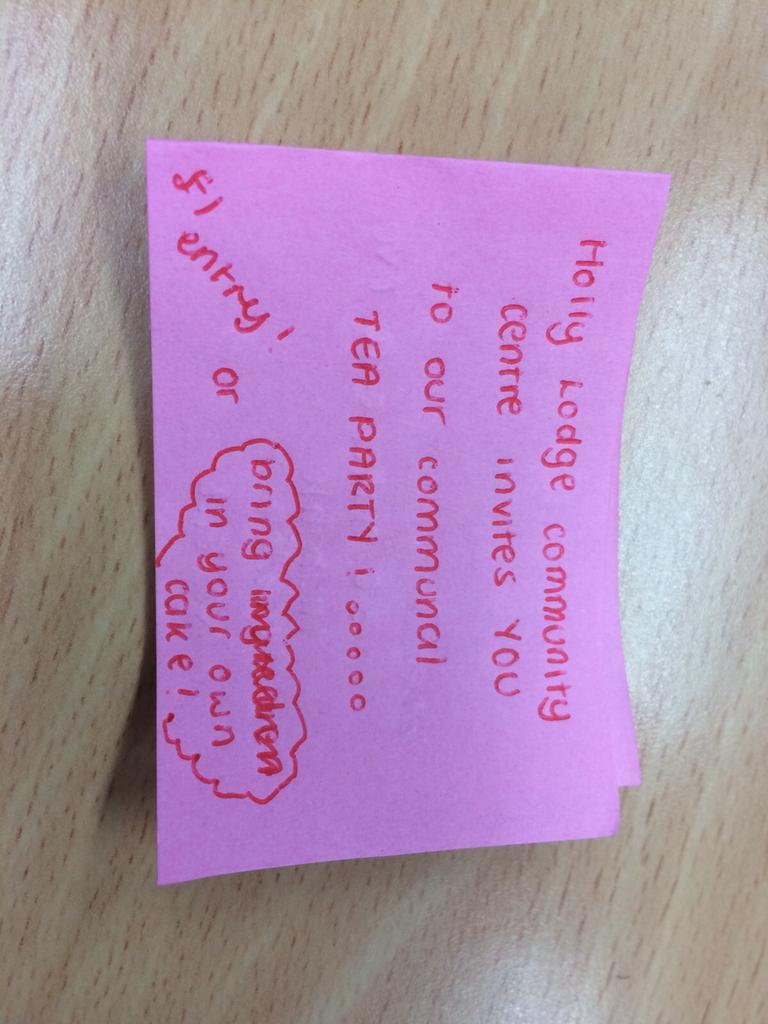 Holly Lodge community
centre invites YOU
to our communal
TEA PARTY!.....
£1 entry! or
bring
in your own
cake!